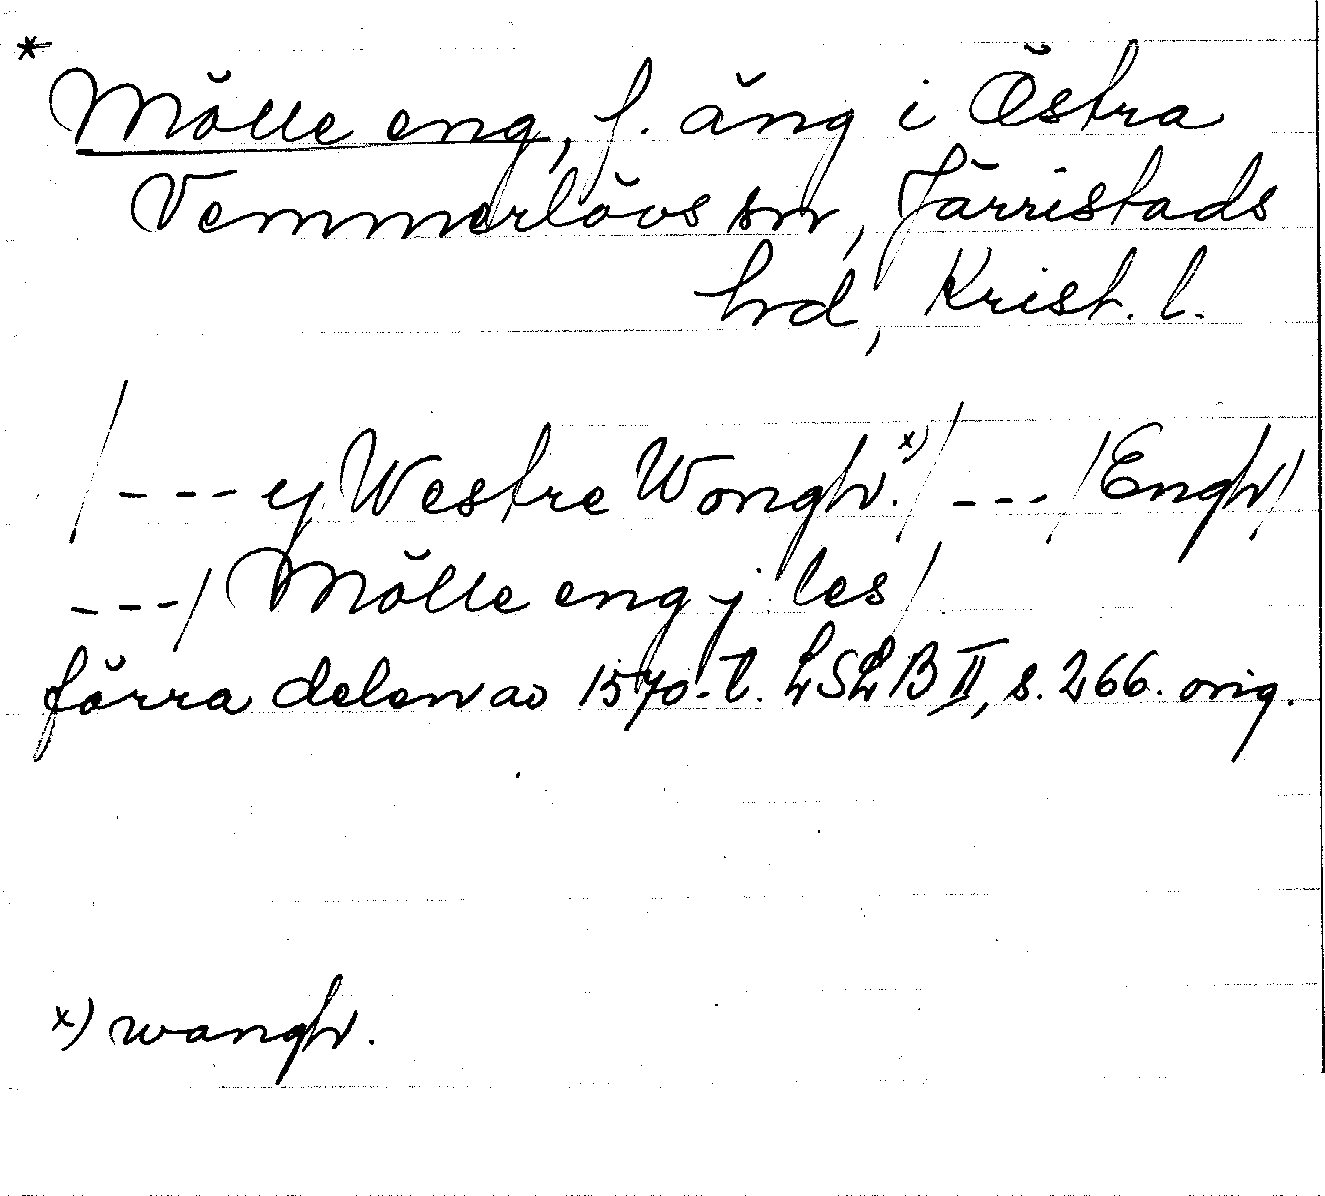 * Mölle eng, f. äng i Östra
Vemmerlövs sn, Järrestads
hrd, Krist. l.
/ --- y Westre Wongh.x) / --- / Engh /
--- / Mölle eng j les /
förra delen av 1570-t. LSLB II, s. 266. orig.
x) wangh.